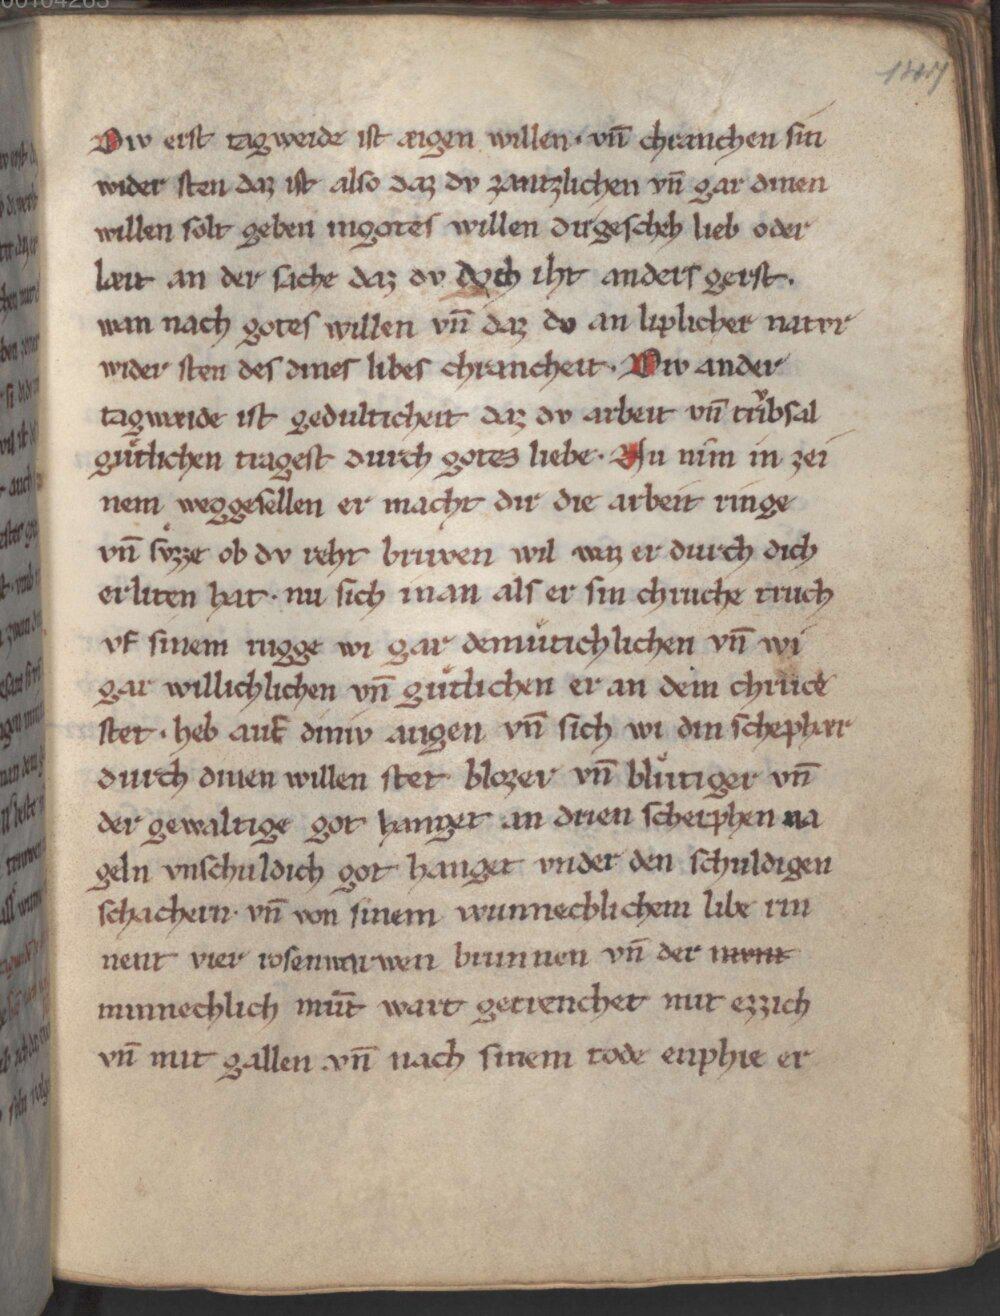 Div erst tagweide ist aigen willen · vn̄ chranchen sin
wider sten daz ist also daz dv zantzlichen vn̄ gar dinen
willen solt geben in gotes willen dir gescheh lieb oder
læit an der sache daz dv doch iht anders gerst .
wan nach gotes willen vn̄ daz dv an liplicher natvr
wider sten des dines libes chrancheit · Div ander
tagwæide ist gedulticheit daz dv arbeit vn̄ trv̊bsal
gu̍tlichen tragest durch gotes liebe · Nu nim in zei
nem weggesellen er macht dir die arbeit ringe
vn̄ sv̊zze ob dv reht briwen wil waz er durch dich
erliten hat · nu sich in an als er sin chruche truch
vf sinem rugge wi gar demu̍tichlichen vn̄ wi
gar willichlichen vn̄ gu̍tlichen er an dem chruce
stet · heb auf diniv augen vn̄ sich wi din schephær
durch dinen willen stet blozer vn̄ blu̍tiger vn̄
der gewaltige got hanget an drien scherphen na
geln vnschuldich got hanget vnder den schuldigen
schachern · vn̄ von sinem wunnechlichem libe rin
nent vier rosenvarwen brunnen vn̄ der
minnechlich mu̍t wart getrenchet mit ezzich
vn̄ mit gallen vn̄ nach sinem tode enphie er